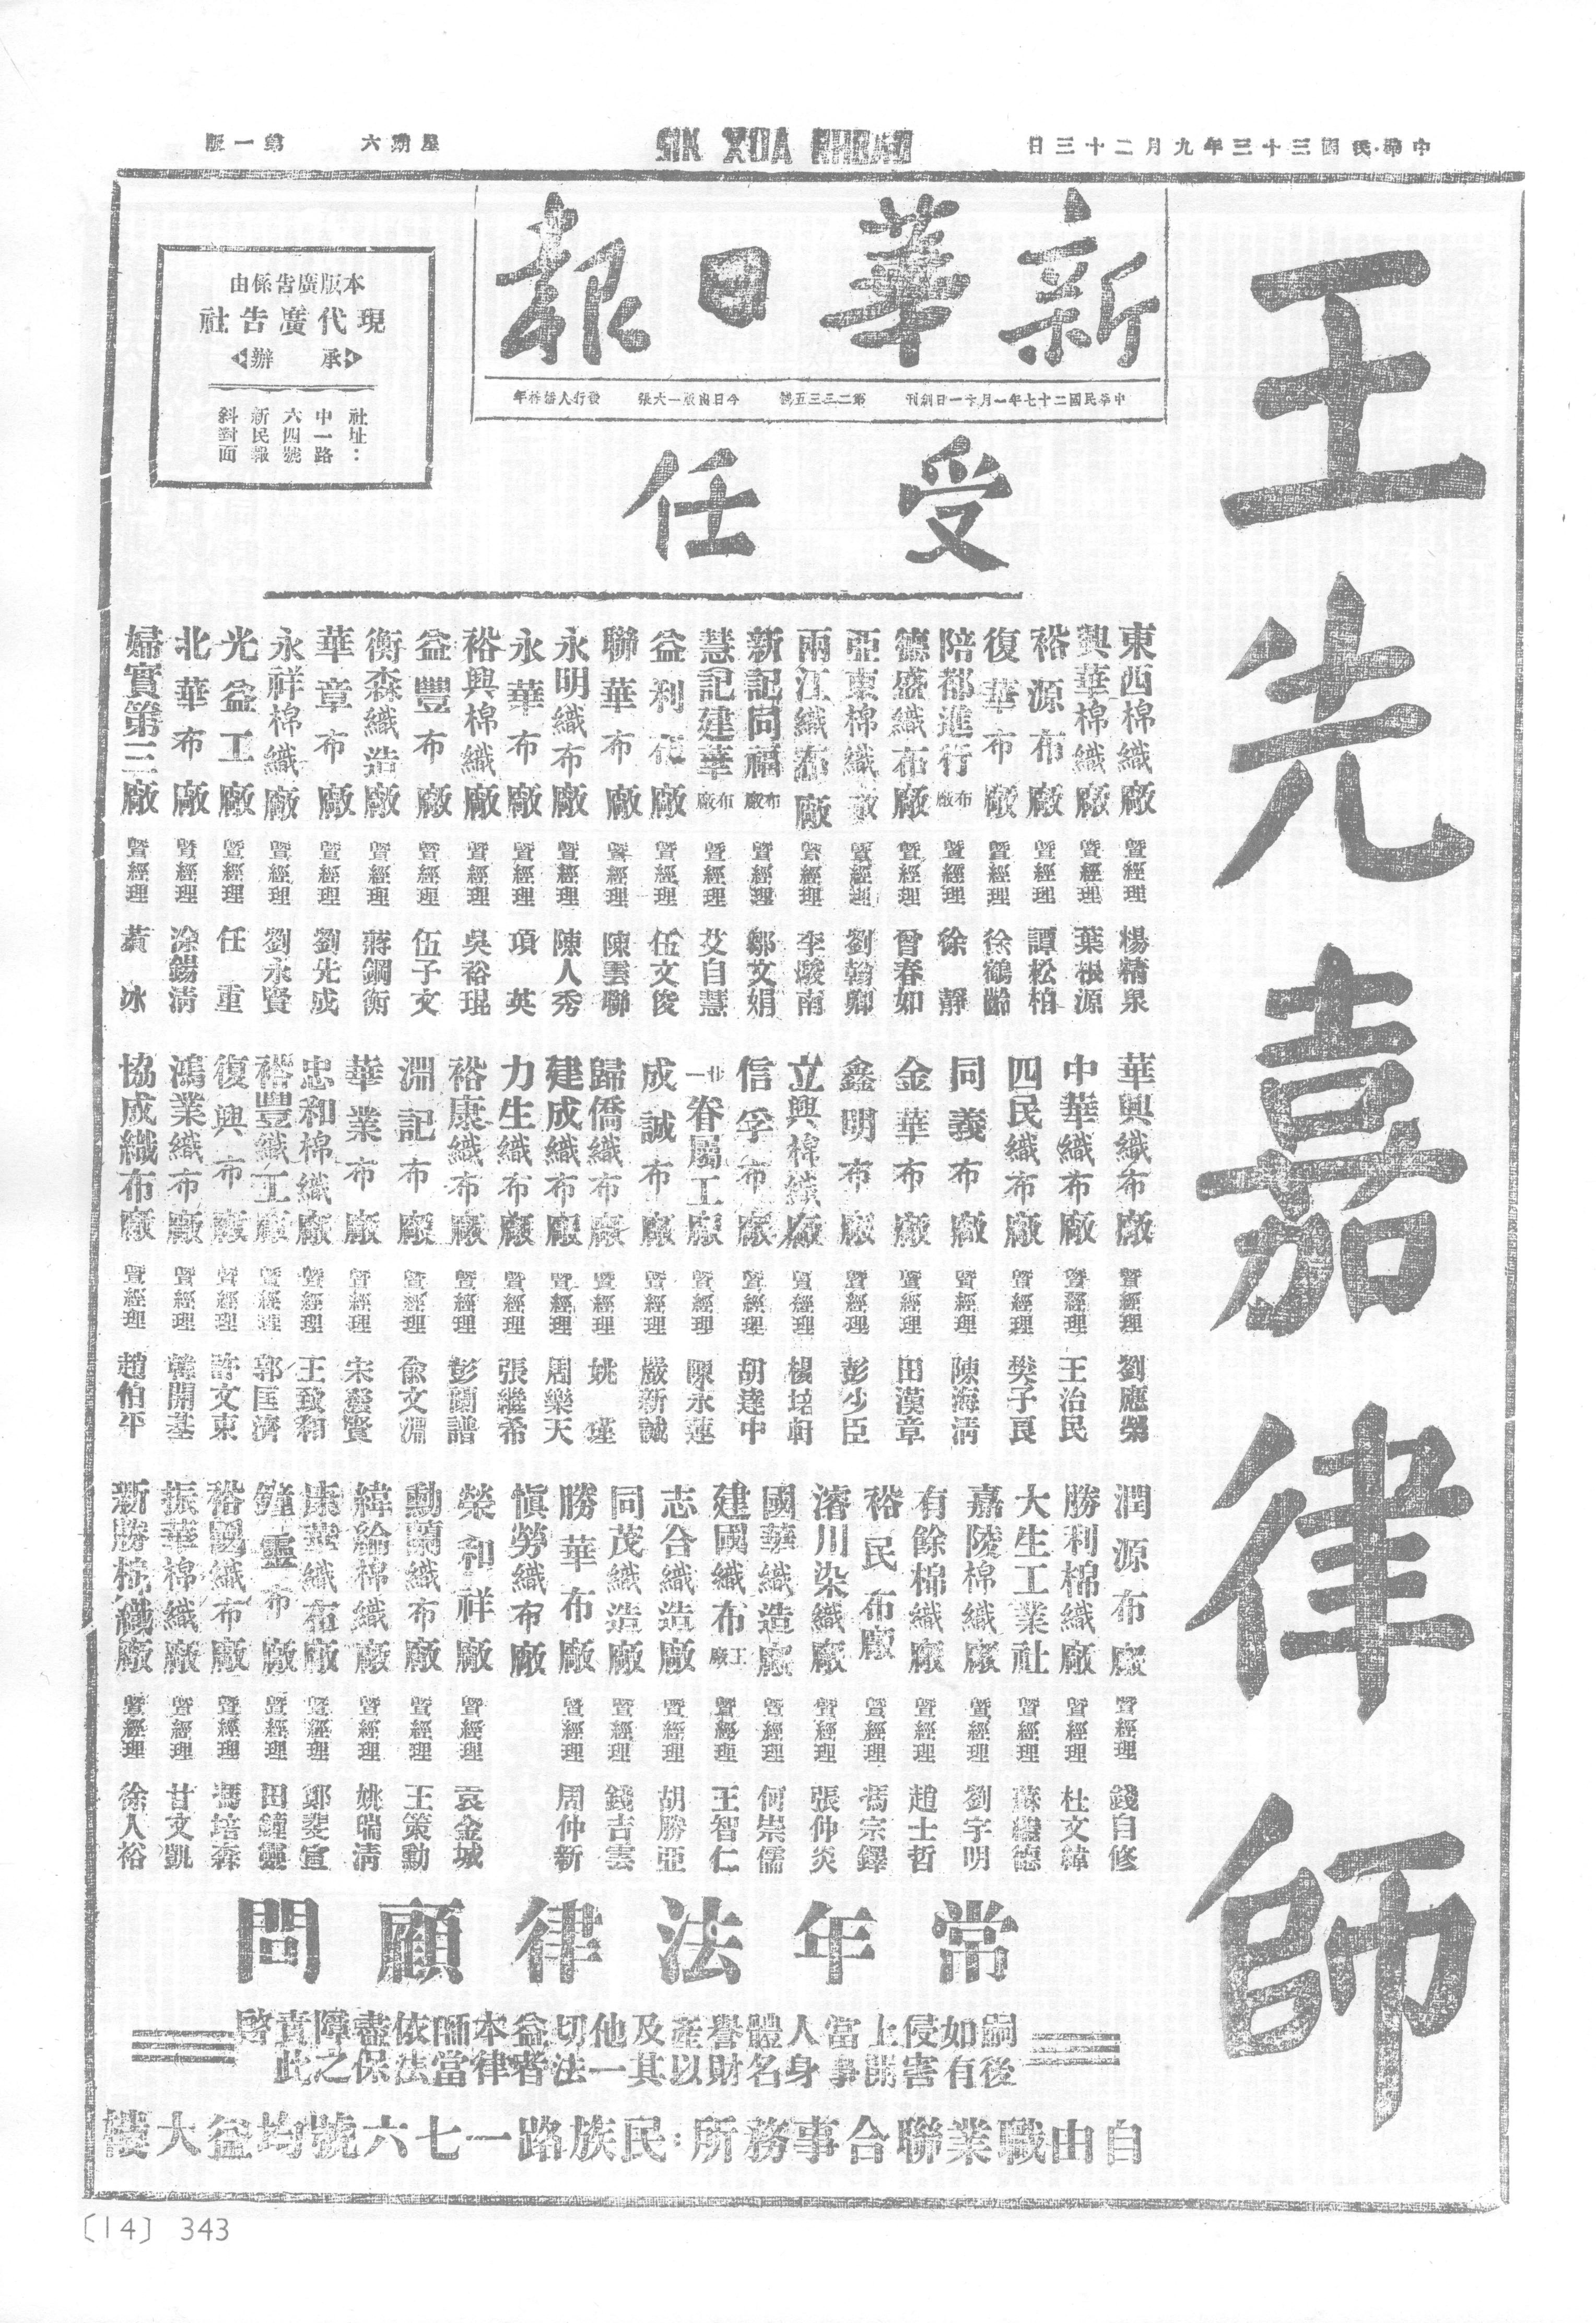 中華民國三十三年九月二十三日
SIN XUA RHBAO
星期六
第一版
新華日報
中華民國二十七年一月十一日創刊
第二三三五號
今日出版一大張
發行人潘梓年
本版廣告係由
現代廣告社
承辦
社址：
中一路
六四號
新民報
斜對面
王先嘉律師
受任
東西棉織廠 暨經理 楊精泉
興華棉織廠 暨經理 葉根源
裕源布廠 暨經理 譚松柏
復華布廠 暨經理 徐鶴齡
陪都進行布廠 暨經理 徐靜
德盛織布廠 暨經理 曾春如
亞東棉織廠 暨經理 劉翰卿
兩江織布廠 暨經理 李駿南
新記同福布廠 暨經理 鄒文娟
慧記建華布廠 暨經理 艾自慧
益利布廠 暨經理 伍文俊
聯華布廠 暨經理 陳雲聯
永明織布廠 暨經理 陳人秀
永華布廠 暨經理 項英
裕興棉織廠 暨經理 吳裕琨
益豐布廠 暨經理 伍子文
衡森織造廠 暨經理 蔣鋼衡
華章布廠 暨經理 劉先成
永祥棉織廠 暨經理 劉永賢
光益工廠 暨經理 任重
北華布廠 暨經理 涂錫清
婦實第三廠 暨經理 黃冰
華興織布廠 暨經理 劉應榮
中華織布廠 暨經理 王治民
四民織布廠 暨經理 樊子良
同義布廠 暨經理 陳海清
金華布廠 暨經理 田漢章
鑫明布廠 暨經理 彭少臣
立興棉織廠 暨經理 楊培軒
信孚布廠 暨經理 胡達中
北一眷屬工廠 暨經理 陳永蓮
成誠布廠 暨經理 嚴新誠
歸僑織布廠 暨經理 姚瑾
建成織布廠 暨經理 周樂天
力生織布廠 暨經理 張繼希
裕康織布廠 暨經理 彭蘭譜
淵記布廠 暨經理 俞文淵
華業布廠 暨經理 宋賢
忠和棉織廠 暨經理 王致和
裕豐織工廠 暨經理 郭匡濟
復興布廠 暨經理 許文東
鴻業織布廠 暨經理 韓開基
協成織布廠 暨經理 趙伯平
潤源布廠 暨經理 錢自修
勝利棉織廠 暨經理 杜文緯
大生工業社 暨經理 蘇德
嘉陵棉織廠 暨經理 劉宇明
有餘棉織廠 暨經理 趙士哲
裕民布廠 暨經理 馮宗鐸
濬川染織廠 暨經理 張仲炎
國華織造廠 暨經理 何崇儒
建國織布工廠 暨經理 王智仁
志合織造廠 暨經理 胡勝亞
同茂織造廠 暨經理 錢吉雲
勝華布廠 暨經理 周仲新
慎勞織布廠
榮和祥廠 暨經理 袁金城
勳蘭織布廠 暨經理 王策勳
緯綸棉織廠 暨經理 姚瑞清
康華織布廠 暨經理 鄭斐宣
鐘靈布廠 暨經理 田鐘靈
裕國織布廠 暨經理 馮培森
振華棉織廠 暨經理 甘文凱
新勝棉織廠 暨經理 徐人裕
常年法律顧問
嗣後如有侵害上開當事人身體名譽財產以及其他一切法益者本律師當依法盡保障之責此啓
自由職業聯合事務所：民族路一七六號均益大樓
〔14〕 343